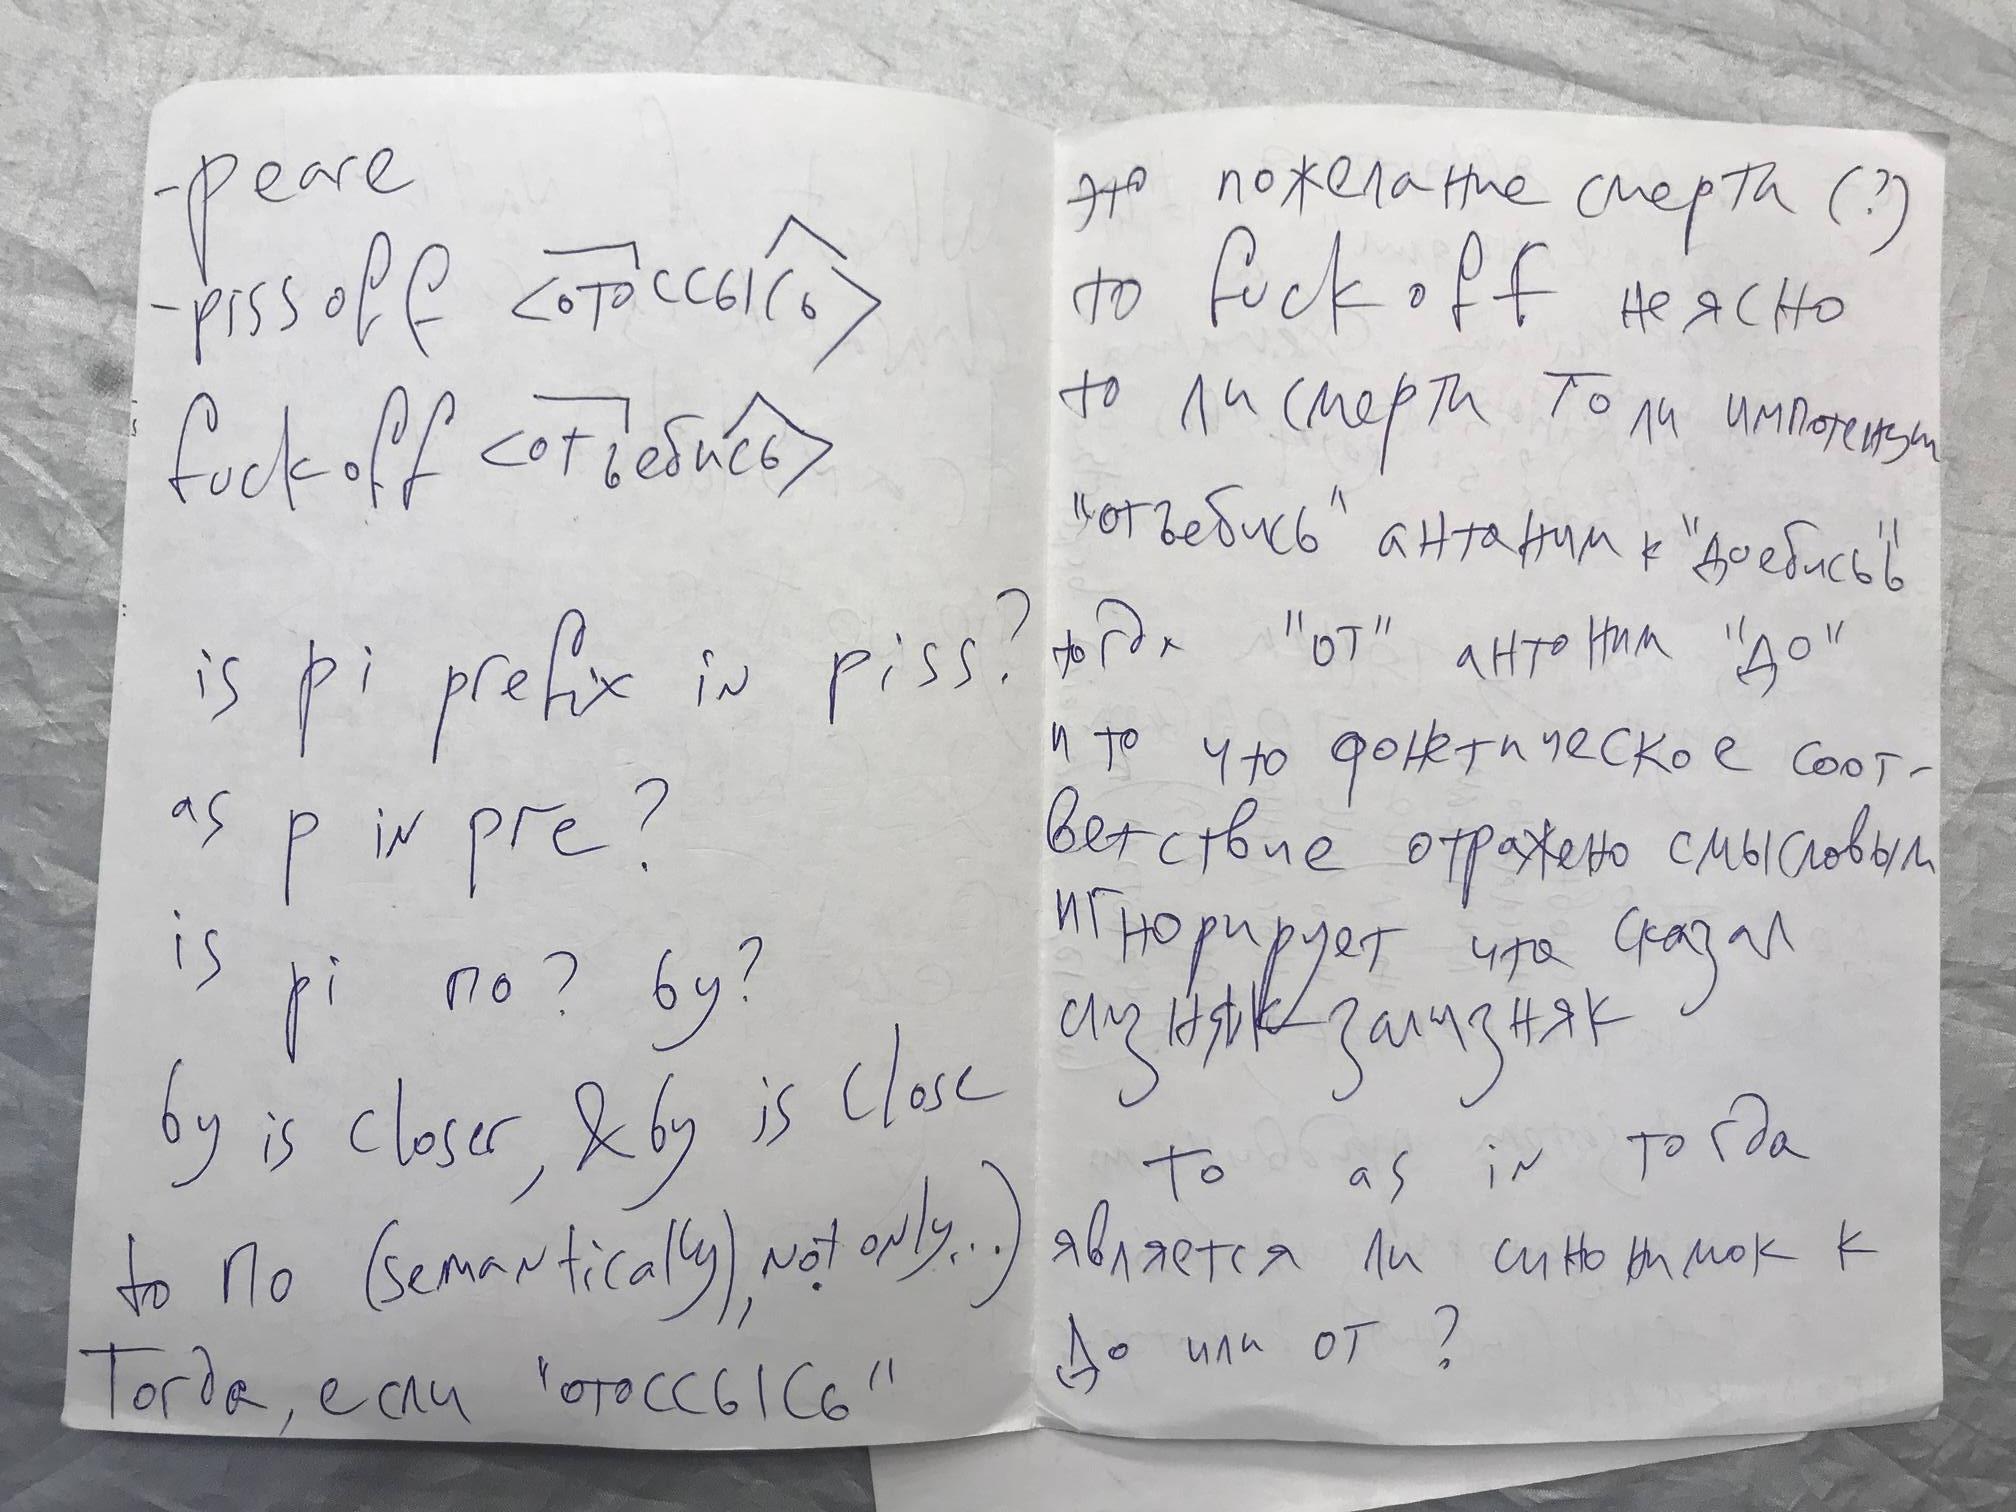 -peare
-piss off <отоссысь>
fuck off <отъебись>
is pi prefix in piss?
as p in pre?
is pi по? by?
by is closer, & by is close
to по (semantically), not only...)
Тогда, если "отоссысь"
это пожелание смерти (?)
то fuck off неясно
то ли смерти то ли импотенции
"отъебись" антоним к "доебись"
тогда "от" антоним "до"
и то что фонетическое соот-
ветствие отражено смысловым
игнорирует что сказал
зализняк
то as in тогда
является ли синонимок к
до или от?